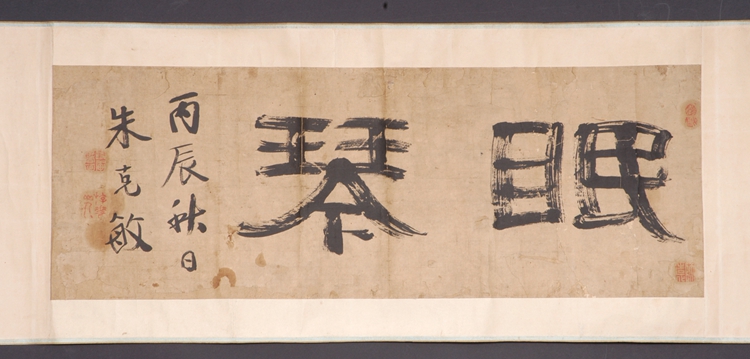 眠琴
丙辰秋日
朱克敏